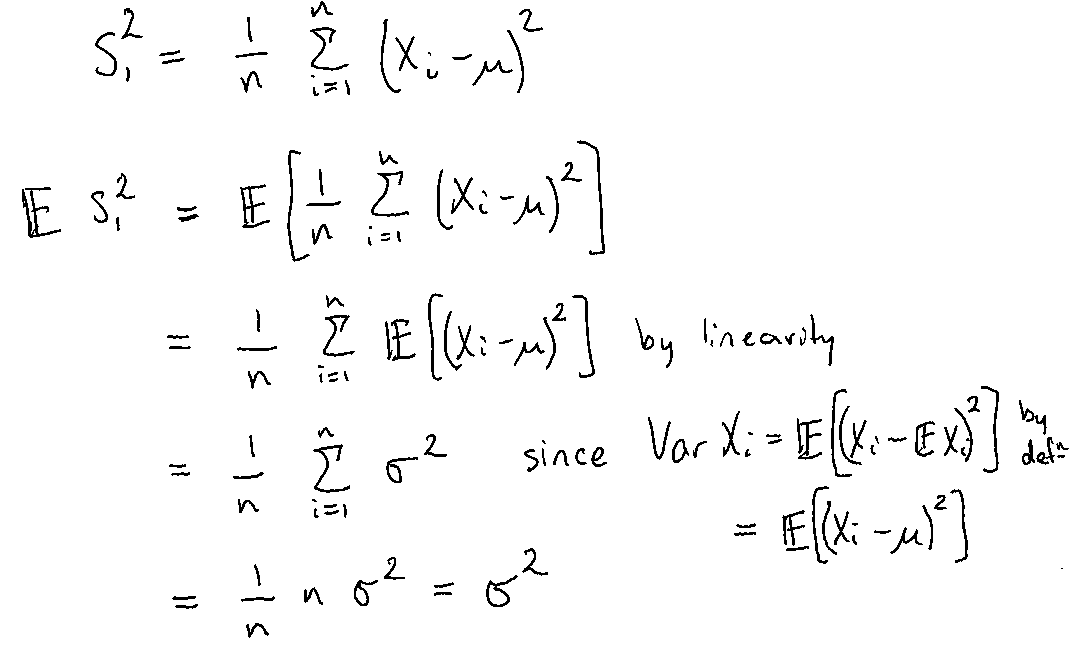 S₁² = 1/n ∑_{i=1}^{n} (Xᵢ - μ)²
𝔼 S₁² = 𝔼[1/n ∑_{i=1}^{n} (Xᵢ - μ)²]
= 1/n ∑_{i=1}^{n} 𝔼[(Xᵢ - μ)²] by linearity
= 1/n ∑_{i=1}^{n} σ² since Var Xᵢ = 𝔼[(Xᵢ - 𝔼Xᵢ)²] by defⁿ
= 𝔼[(Xᵢ - μ)²]
= 1/n n σ² = σ²